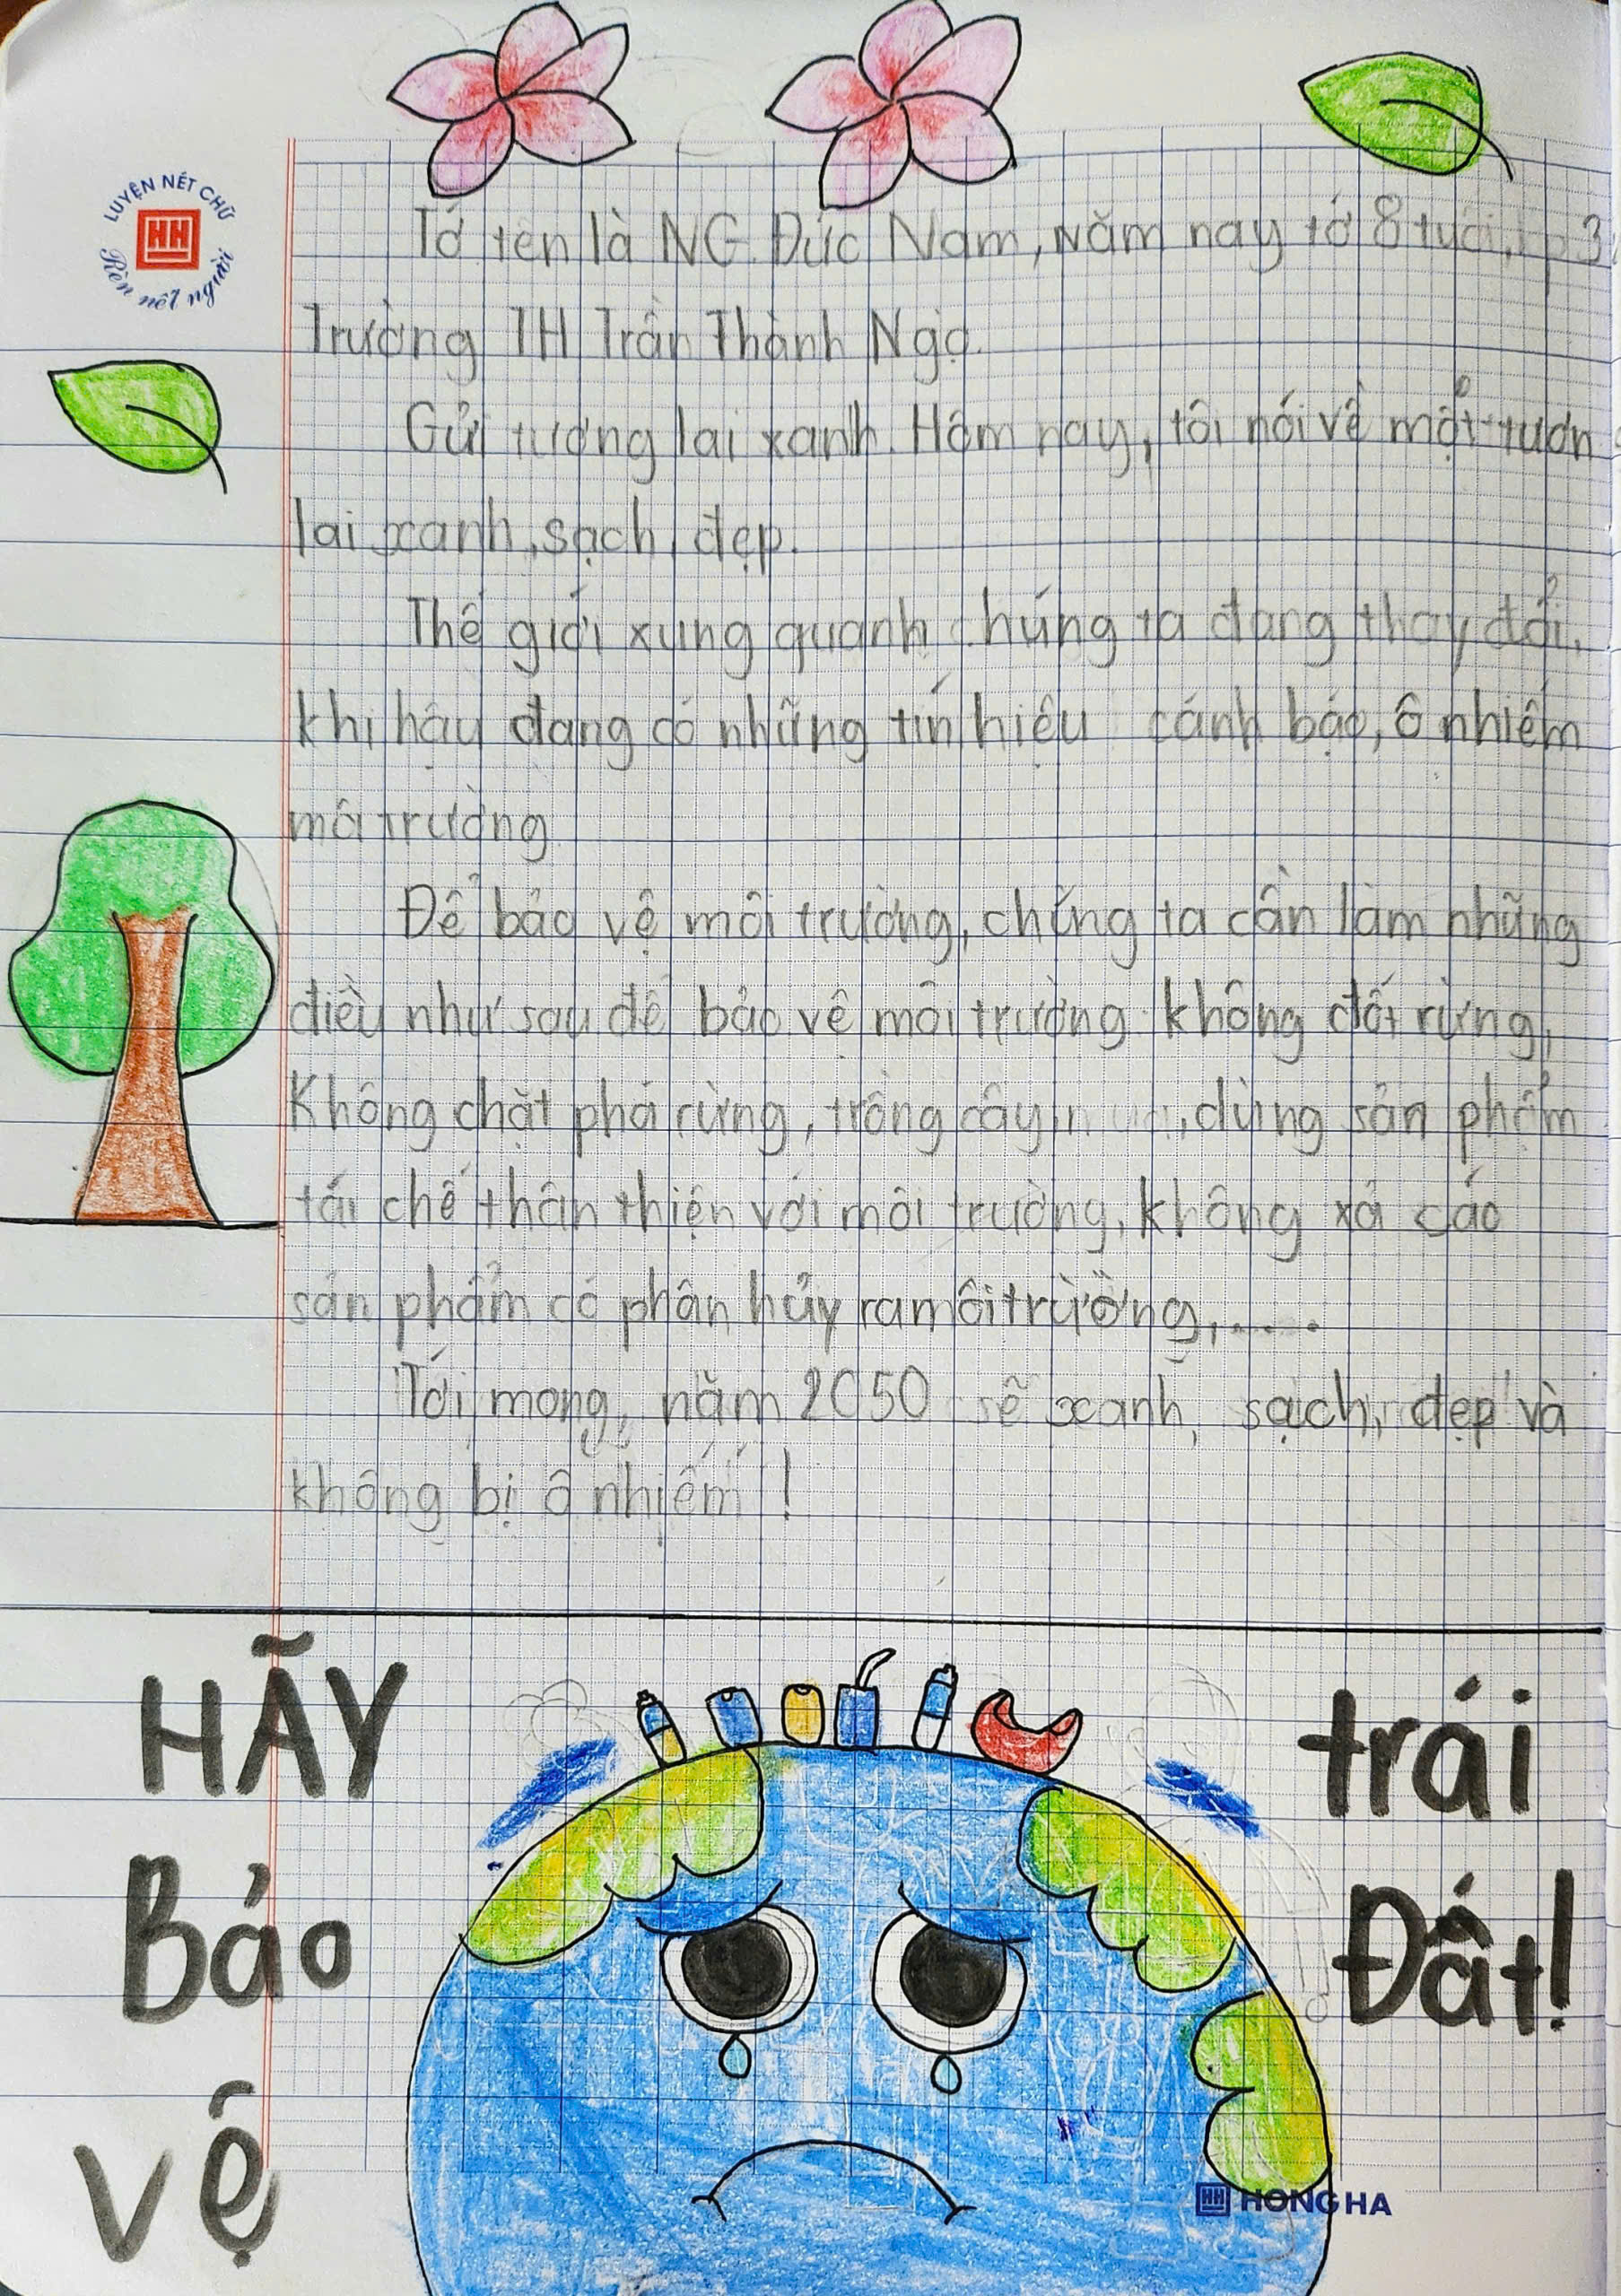 LUYỆN NÉT CHỮ
HH
Rèn nết người
Tớ tên là NG. Đức Nam, năm nay tớ 8 tuổi, lớp 3
Trường TH Trần Thành Ngọ.
Gửi tương lai xanh. Hôm nay, tôi nói về một tươn
lai xanh, sạch, đẹp.
Thế giới xung quanh chúng ta đang thay đổi,
khí hậu đang có những tín hiệu cảnh báo, ô nhiễm
môi trường
Để bảo vệ môi trường, chúng ta cần làm những
điều như sau để bảo vệ môi trường. không đốt rừng,
Không chặt phá rừng, trồng cây, dùng sản phẩm
tái chế thân thiện với môi trường, không xả cáo
sản phẩm có phân hủy ra môi trường,.....
Tôi mong, năm 2050 sẽ xanh, sạch, đẹp và
không bị ô nhiễm !
HÃY
Bảo
vệ
trái
Đất!
HH HONG HA